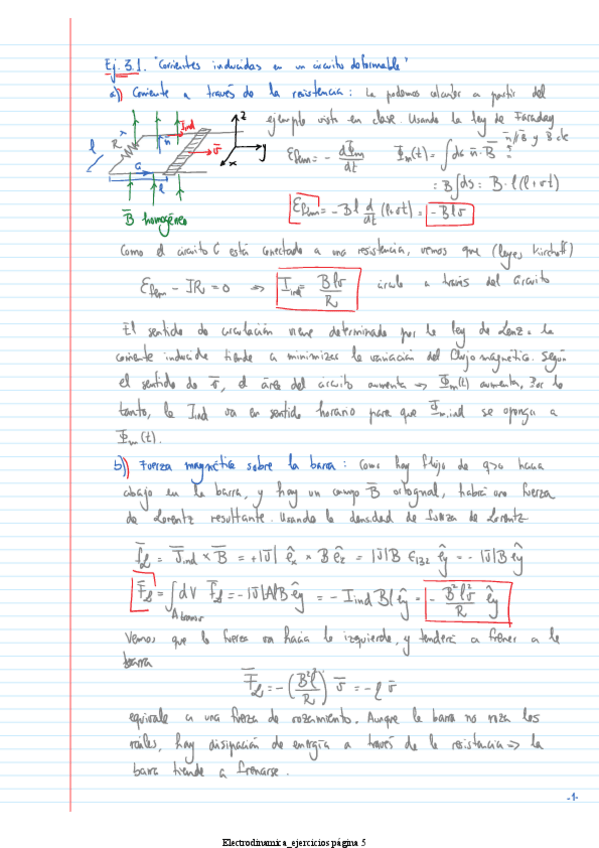 Ej. 3.1. "Corrientes inducidas en un circuito deformable"
a)) Corriente a través de la resistencia: La podemos calcular a partir del
ejemplo visto en clase. Usando la ley de Faraday
z
I_ind
R
n̄
v̄
y
x
l
C
l
B̄ homogéneo
n̄ ∥ B̄ y B cte
ε_fem = - dΦ_m/dt Φ_m(t) = ∫ds n̄·B̄ =
= B∫ds = B·l(l+vt)
ε_fem = -Bl d/dt (l+vt) = -Blv
Como el circuito C está conectado a una resistencia, vemos que (leyes Kirchoff)
ε_fem - IR = 0 => I_ind = Blv/R circula a través del circuito
El sentido de circulación viene determinado por la ley de Lenz: la
corriente inducida tiende a minimizar la variación del flujo magnético. Según
el sentido de v̄, el área del circuito aumenta => Φ_m(t) aumenta. Por lo
tanto, la I_ind va en sentido horario para que Φ_m,ind se oponga a
Φ_m(t).
b)) Fuerza magnética sobre la barra: Como hay flujo de q>0 hacia
abajo en la barra, y hay un campo B̄ ortogonal, habrá una fuerza
de Lorentz resultante. Usando la densidad de fuerza de Lorentz
f̄_L = J̄_ind × B̄ = +|J| ê_x × B ê_z = |J|B ε_132 ê_y = -|J|B ê_y
F̄_L = ∫dV f̄_L = -|J|AlB ê_y = -I_ind Bl ê_y = - B²l²v/R ê_y
Vemos que la fuerza va hacia la izquierda, y tenderá a frenar a la
barra
F̄_L = -(B²l²/R) v̄ = -ρ v̄
equivale a una fuerza de rozamiento. Aunque la barra no roza los
raíles, hay disipación de energía a través de la resistencia => la
barra tiende a frenarse.
-1-
Electrodinamica_ejercicios página 5